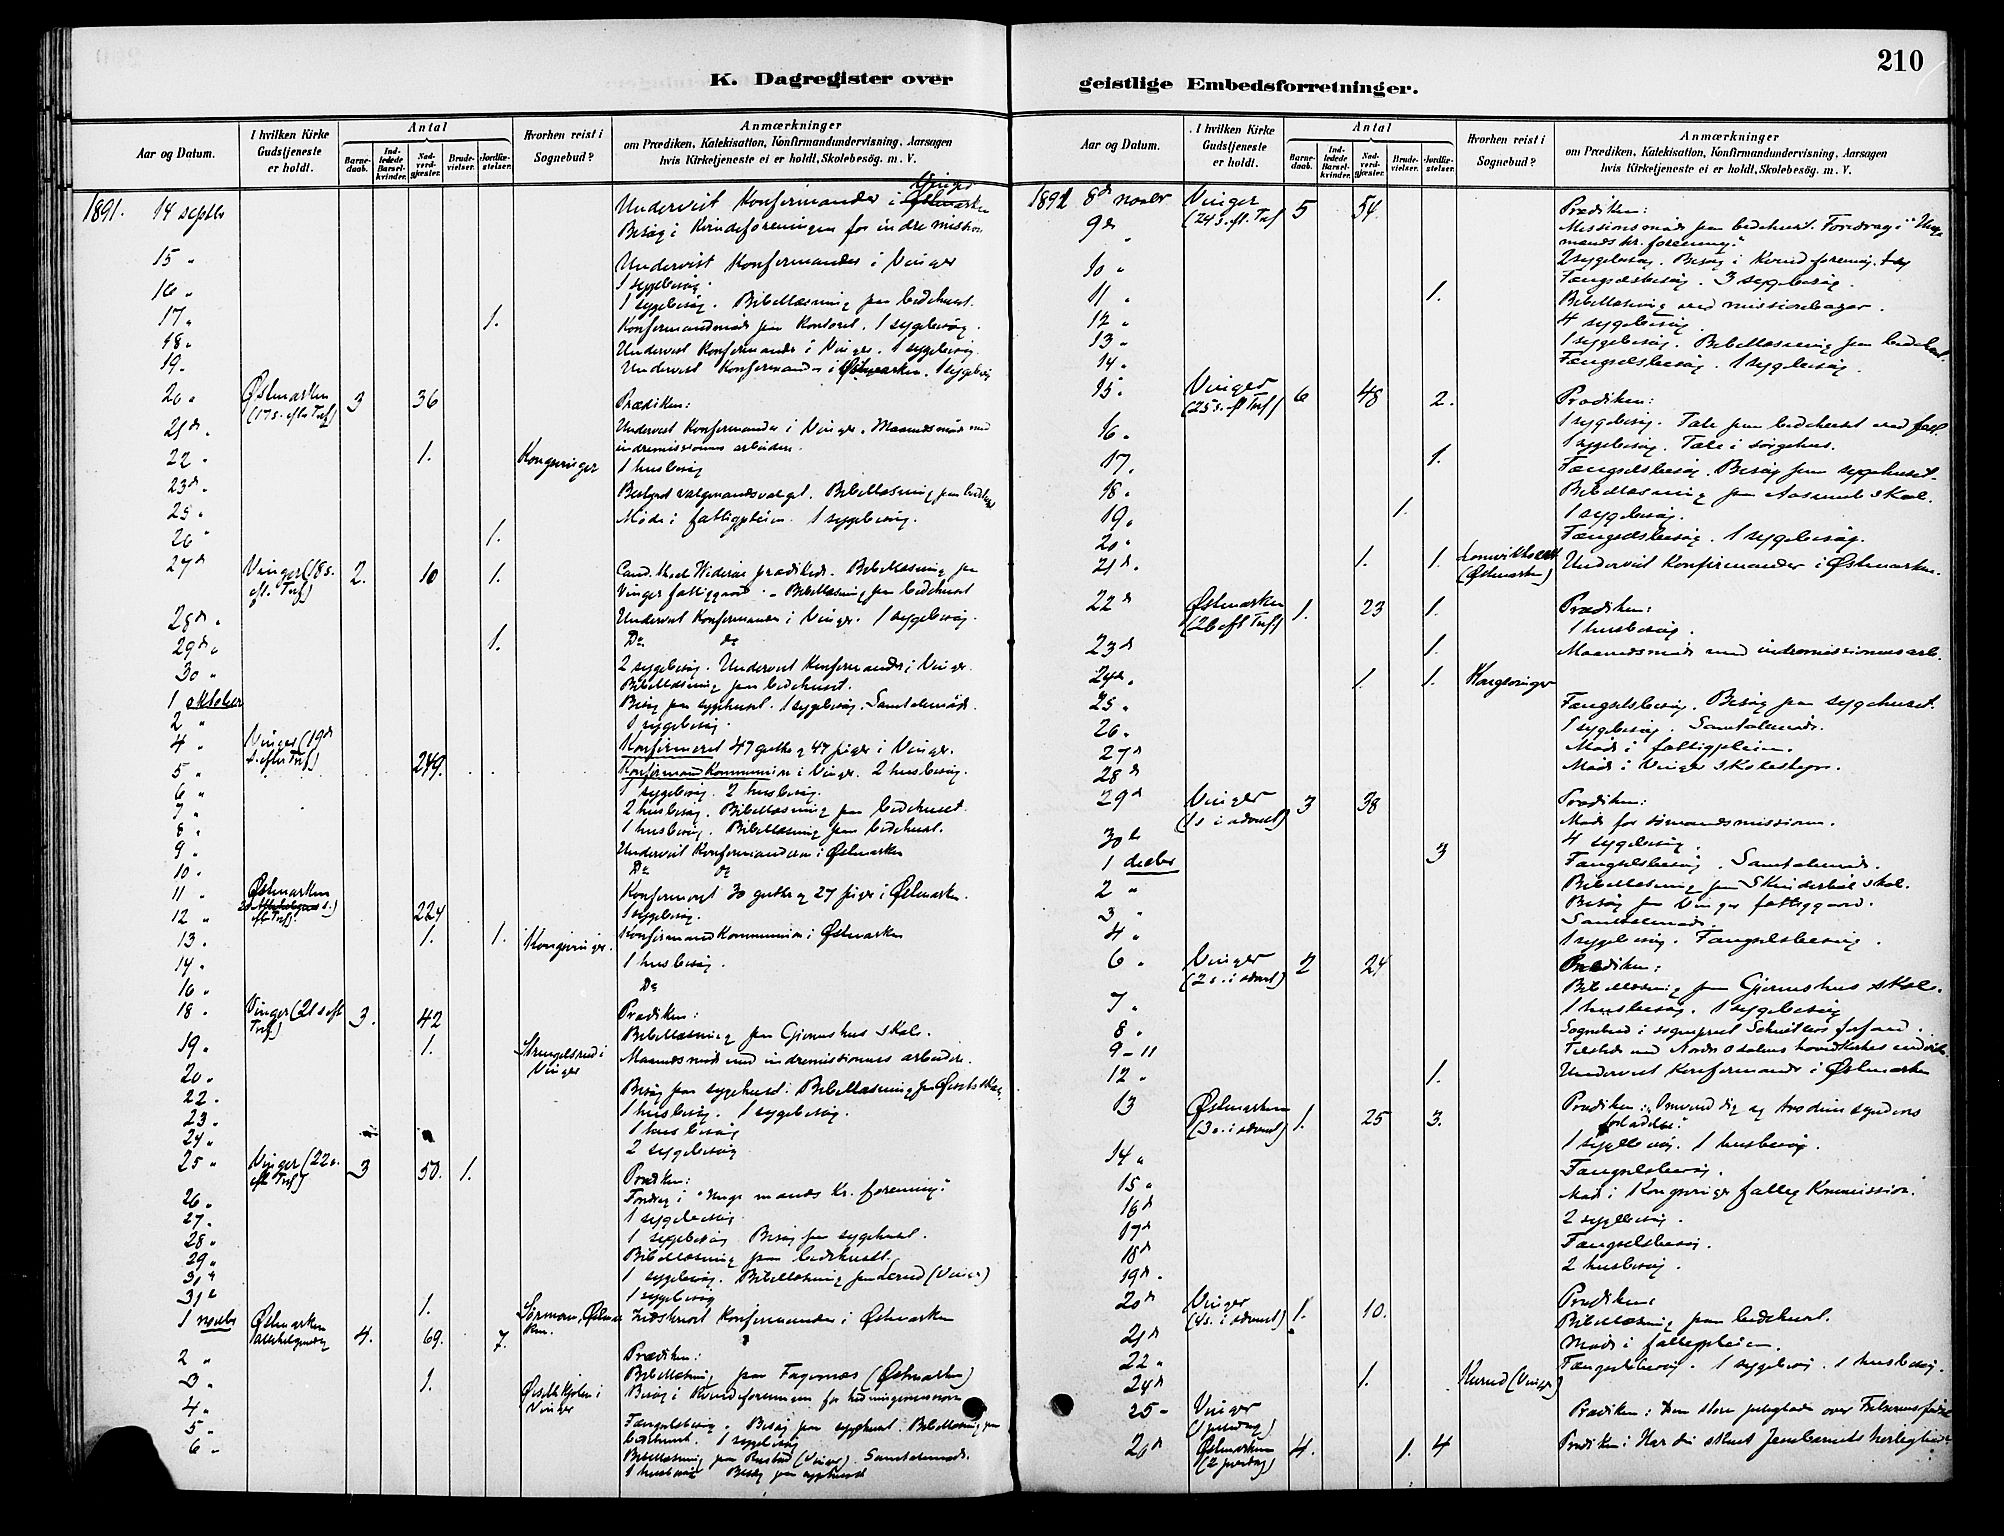 210
K. Dagregister over
geistlige Embedsforretninger.
Aar og Datum.
I hvilken Kirke Gudstjeneste er holdt.
Antal
Barnedaab.
Indledede Barselkvinder.
Nadverdgjæster.
Brudevielser.
Jordfæstelser.
Hvorhen reist i Sognebud?
Anmærkninger
om Prædiken, Katekisation, Konfirmandundervisning, Aarsagen
hvis Kirketjeneste ei er holdt, Skolebesög. m. V.
1891. 14 septbr Undervist Konfirmander i Østmarken Vinger
Besøg i Kvindeforeningen for indre mission
15 " Undervist Konfirmander i Vinger
1 sygebesøg.
16 " 1 sygebesøg. Bibellæsning paa bedehuset.
17 " 1. Konfirmandmøde paa Kontoret. 1 sygebesøg.
18 " Undervist Konfirmander i Vinger. 1 sygebesøg.
19. Undervist Konfirmander i Østmarken. 1 sygebesøg
20 " Østmarken 3 36 Prædiken:
(17 s. efter Tref)
21de Undervist Konfirmander i Vinger. Maanedsmøde med
indremissionens arbeidere.
22 " 1. Kongsvinger 1 husbesøg
23de Bestyret valgmandsvalget. Bibellæsning paa bedehuset
25 " Møde i fattigpleien. 1 sygebesøg.
26 " 1.
27de Vinger (18 s. 2. 10 1. Cand. theol Widerøe prædikede. Bibellæsning paa
eft. Tref) Vinger fattiggaard. Bibellæsning paa bedehuset
28de Undervist Konfirmander i Vinger. 1 sygebesøg.
29de 1. Do do
30 " 2 sygebesøg. Undervist Konfirmander i Vinger.
Bibellæsning paa bedehuset.
1 oktober Besøg paa sygehuset. 1 sygebesøg. Samtalemøde.
2 " 1 sygebesøg.
4 " Vinger (19de Konfirmeret 47 gutter og 47 piger i Vinger.
s. efter Tref)
5 " 249. Konfirmand Kommunion i Vinger. 2 husbesøg.
6 " 1 sygebesøg. 2 husbesøg.
7 " 2 husbesøg. Bibellæsning paa bedehuset.
8 " 1 husbesøg. Bibellæsning paa bedehuset.
9 " Undervist Konfirmanderne i Østmarken
10 " Do do
11 " Østmarken Konfirmeret 30 gutter og 27 piger i Østmarken.
eft Tref)
1 sygebesøg.
12 " 224
13 " 1. 1. Kongsvinger. Konfirmand Kommunion i Østmarken
14 " 1 husbesøg.
16 " Do
18 " Vinger (21 s eft 3. 42 Prædiken:
Tref) Bibellæsning paa Gjemshus skole.
19 " 1. Strengelsrud i Maanedsmøde med indremissionens arbeidere.
Vinger
20 "
22. Besøg paa sygehuset. Bibellæsning paa
23 " 1 husbesøg. 1 sygebesøg.
24 " 1 husbesøg
2 sygebesøg
25 " Vinger (22 s. 3 50. 1. Prædiken:
eft Tref) Foredrag i "Unge mænds kr. forening."
26 " 1 sygebesøg.
27. 1 sygebesøg. Besøg paa sygehuset.
28 " Bibellæsning paa bedehuset.
29 " 1 sygebesøg. Bibellæsning (Vinger)
31te 1 sygebesøg
1. Sørmoen, Østmarken. Konfirmander i Østmarken
1 novbr Østmarken 4. 69. 7.
(allehelgensdag
2 " Prædiken:
3 " 1. i Bibellæsning paa Fagernæs (Østmarken)
Vinger Besøg i Kvindeforeningen for hedningemissionen
4 " Fængselsbesøg. Besøg paa sygehuset. Bibellæsning paa
5 " bedehuset. 1 sygebesøg
6 " Bibellæsning paa Rustad (Vinger). Samtalemøde.
1 husbesøg Besøg paa sygehuset
Aar og Datum.
I hvilken Kirke Gudstjeneste er holdt.
Antal
Barnedaab.
Indledede Barselkvinder.
Nadverdgjæster.
Brudevielser.
Jordfæstelser.
Hvorhen reist i Sognebud?
Anmærkninger
om Prædiken, Katekisation, Konfirmandundervisning, Aarsagen
hvis Kirketjeneste ei er holdt, Skolebesög. m. V.
1891 8de novbr Vinger 5 54. Prædiken:
(24 s. eft. Tref Missionsmøde paa bedehuset. Foredrag i "Unge
9de mænds kr. forening."
10 " 2 sygebesøg. Besøg i Kvindeforening
11 " 1. Fængselsbesøg. 3 sygebesøg.
Bibellæsning ved missionsbazar.
12 " 4 sygebesøg.
13 " 1 sygebesøg. Bibellæsning paa bedehuset.
14 " Fængselsbesøg. 1 sygebesøg.
15. Vinger 6 48 2. Prædiken:
(25 s. eft Tref) 1 sygebesøg. Tale paa bedehuset ved fest.
16 " 1 sygebesøg. Tale i sørgehus.
17. 1. Fængselsbesøg. Besøg paa sygehuset.
18 " Bibellæsning paa Aasmul skole.
19 " 1. 1 sygebesøg.
20 " Fængselsbesøg. 1 sygebesøg.
21de 1. 1. (Østmarken) Undervist Konfirmander i Østmarken.
22de Østmarken 1. 23 1. Prædiken:
(26 eft Tref) 1 husbesøg.
23de 1. Maanedsmøde med indremissionens arb.
24de 1. 1. Kongsvinger
25 " Fængselsbesøg. Besøg paa sygehuset.
26. 1 sygebesøg. Samtalemøde.
27de Møde i fattigpleien.
28de Møde i Vinger skolestyre.
29de Vinger 3 38 Prædiken:
(1 s i advent) Møde for sømandsmissionen.
30te 4 sygebesøg.
1 decbr 3 Fængselsbesøg. Samtalemøde.
2 " Bibellæsning paa Skinderbøl skole.
3 " Besøg paa Vinger fattiggaard.
Samtalemøde
4 " 1 sygebesøg. Fængselsbesøg.
6 " Vinger 2 24 Prædiken:
(2 s. i advent) Bibellæsning paa Gjemshus skole.
7 " 1 husbesøg. 1 sygebesøg
8 "
9-11
12 " 1. Undervist Konfirmander i Østmarken
13 Østmarken 1. 25 3. Prædiken: Omvend dig og
(3 s. i advent)
14 " 1 sygebesøg. 1 husbesøg.
15 " Fængselsbesøg.
16de Møde i Kongsvinger fattig Kommission.
17de 2 sygebesøg.
18de Fængselsbesøg.
19de 2 husbesøg.
20de Vinger 1. 10. Prædiken:
(4 s. i advent) Bibellæsning paa bedehuset.
21de Møde i fattigpleien.
22 " Fængselsbesøg. 1 sygebesøg. 1 husbesøg.
24de 1. (Vinger)
25 - Vinger Prædiken: Den store juleglæde over Frelserens fødsel
(1 juledag)
26de Østmarken 4. 1. 4 Prædiken: Har du skuet Jesubarnets herlighed
(2 juledag)